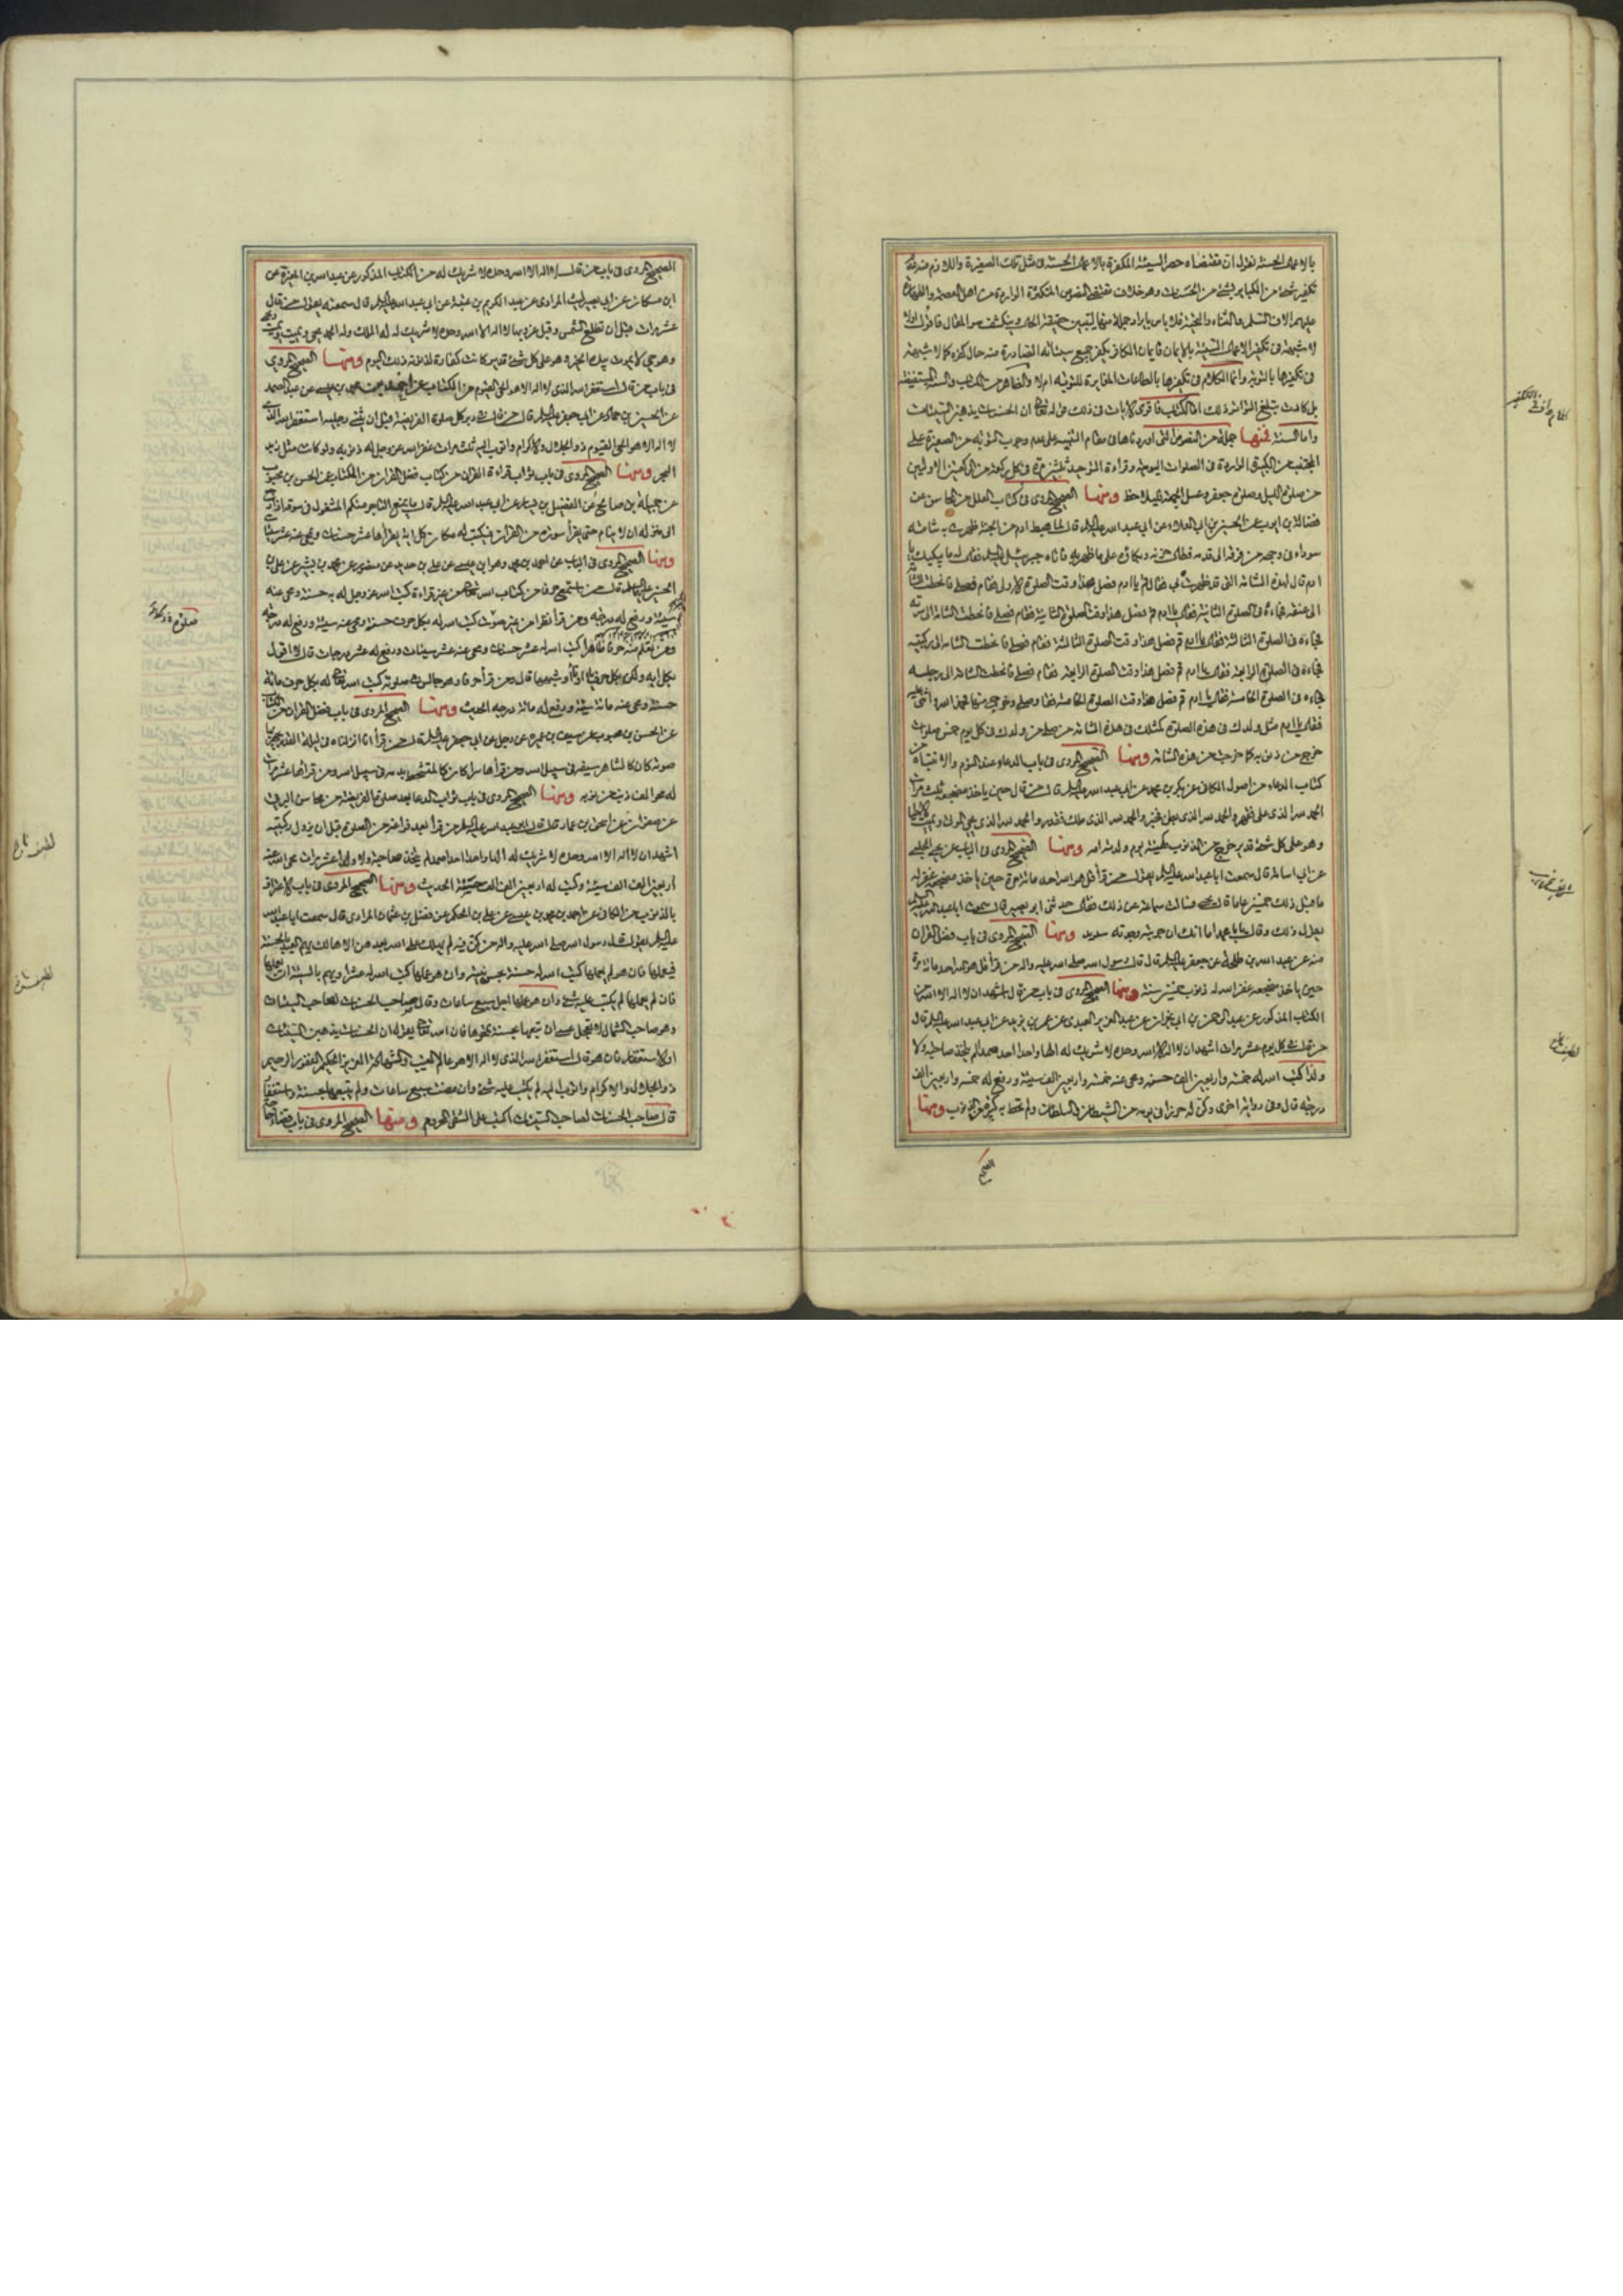 بالاعمال الحسنة نقول ان مقتضاه حصر السيئة المكفرة بالاعمال الحسنة فى مثل تلك الصغيرة واللازم منه
تكفير شئ من الكبائر بشئ من الحسنات وهو خلاف مقتضى النصوص المتكثرة الواردة من اهل العصمة
عليهم الاف التسليم والثناء والتحية فلا باس بايراد جملة منها ليتبين حقيقة الحال وينكشف سر المقال فاقول اولا
لا شبهة فى تكفير الاعمال السيئة بالايمان فايمان الكافر يكفر جميع سيئاته الصادرة منه حال كفره كما لا شبهة
فى تكفيرها بالتوبة وانما الكلام فى تكفيرها بالطاعات المغايرة للتوبة ام لا والظاهر من الكتاب والسنة المستفيضة
بل كادت تبلغ التواتر ذلك اما الكتاب فاقوى الايات فى ذلك قوله تعالى ان الحسنات يذهبن السيئات
واما السنة فمنها جملة من النصوص التى اوردناها فى مقام التنبيه على عدم وجوب التوبة من الصغيرة على
المجتنب من الكبيرة الواردة فى الصلوات اليومية وقراءة التوحيد فى كل ركعة من الركعتين الاوليين
من صلوة الليل وصلوة جعفر وغسل الجمعة فليلاحظ ومنها الصحيح المروى فى كتاب العلل من المحاسن عن
فضالة بن ايوب عن الحسين بن ابى العلاء عن ابى عبد الله عليه السلم قال لما هبط ادم من الجنة ظهرت به شامة
سوداء فى وجهه من قرنه الى قدمه فطال حزنه وبكاؤه على ما ظهر به فاتاه جبرئيل عليه السلم فقال له ما يبكيك يا
ادم قال لهذه الشامة التى قد ظهرت بى فقال قم يا ادم فصل فهذا وقت الصلوة الاولى فقام فصلى فانحطت الشامة
الى عنقه فجاءه فى الصلوة الثانية فقال يا ادم قم فصل فهذا وقت الصلوة الثانية فقام فصلى فانحطت الشامة الى سرته
فجاءه فى الصلوة الثالثة فقال يا ادم قم فصل فهذا وقت الصلوة الثالثة فقام فصلى فانحطت الشامة الى ركبتيه
فجاءه فى الصلوة الرابعة فقال يا ادم قم فصل فهذا وقت الصلوة الرابعة فقام فصلى فانحطت الشامة الى رجليه
فجاءه فى الصلوة الخامسة فقال يا ادم قم فصل فهذا وقت الصلوة الخامسة فقام وصلى وخرج منها فحمد الله واثنى عليه
فقال يا ادم مثل ولدك فى هذه الصلوة كمثلك فى هذه الشامة من صلى من ولدك فى كل يوم خمس صلوات
خرج من ذنوبه كما خرجت من هذه الشامة ومنها الصحيح المروى فى باب الدعاء عند النوم والانتباه من
كتاب الدعاء من اصول الكافى عن بكر بن محمد عن ابى عبد الله عليه السلم قال من قال حين ياخذ مضجعه ثلث مرات
الحمد لله الذى على فقهر والحمد لله الذى بطن فخبر والحمد لله الذى ملك فقدر والحمد لله الذى يحيى الموتى ويميت الاحياء
وهو على كل شئ قدير خرج من الذنوب كهيئة يوم ولدته امه ومنها الصحيح المروى فى الباب عن يحيى الحلبى
عن ابى اسامة قال سمعت ابا عبد الله عليه السلم يقول من قرأ قل هو الله احد مائة مرة حين ياخذ مضجعه غفر له
ما قبل ذلك خمسين عاما قال يحيى فسالت سماعة عن ذلك فقال حدثنى ابو بصير قال سمعت ابا عبد الله عليه السلم
يقول ذلك وقال يا با محمد اما انك ان جربته وجدته سديدا ومنها الصحيح المروى فى باب فضل القران
منه عن عبد الله بن طلحة عن جعفر عليه السلم قال قال رسول الله صلى الله عليه واله من قرأ قل هو الله احد مائة مرة
حين ياخذ مضجعه غفر الله له ذنوب خمسين سنة ومنها الصحيح المروى فى باب من قال اشهد ان لا اله الا الله من
الكتاب المذكور عن عبد الرحمن بن ابى نجران عن عبد العزيز العبدى عن عمر بن يزيد عن ابى عبد الله عليه السلم قال
من قال فى كل يوم عشر مرات اشهد ان لا اله الا الله وحده لا شريك له الها واحدا احدا صمدا لم يتخذ صاحبة ولا
ولدا كتب الله له خمسة واربعين الف حسنة ومحى عنه خمسة واربعين الف سيئة ورفع له خمسة واربعين الف
درجة قال وفى رواية اخرى وكن له حرزا فى يومه من الشيطان والسلطان ولم تحط به كبيرة من الذنوب ومنها
الصحيح
الصحيح المروى فى باب من قال لا اله الا الله وحده لا شريك له من الكتاب المذكور عن عبد الله بن المغيرة عن
ابن مسكان عن ابى بصير ليث المرادى عن عبد الكريم بن عتبة عن ابى عبد الله عليه السلم قال سمعته يقول من قال
عشر مرات قبل ان تطلع الشمس وقبل غروبها لا اله الا الله وحده لا شريك له له الملك وله الحمد يحيى ويميت ويميت ويحيى
وهو حى لا يموت بيده الخير وهو على كل شئ قدير كانت كفارة لذنوبه ذلك اليوم ومنها الصحيح المروى
فى باب من قال استغفر الله الذى لا اله الا هو الحى القيوم من الكتاب عن احمد بن محمد بن عيسى عن عبد الصمد
عن الحسين بن حماد عن ابى جعفر عليه السلم قال من قال فى دبر كل صلوة الفريضة قبل ان يثنى رجليه استغفر الله الذى
لا اله الا هو الحى القيوم ذو الجلال والاكرام واتوب اليه ثلث مرات غفر الله عز وجل له ذنوبه ولو كانت مثل زبد
البحر ومنها الصحيح المروى فى باب ثواب قراءة القران من كتاب فضل القران من الكتاب عن الحسن بن محبوب
عن جميل بن صالح عن الفضيل بن يسار عن ابى عبد الله عليه السلم قال ما يمنع التاجر منكم المشغول فى سوقه اذا رجع
الى منزله ان لا ينام حتى يقرأ سورة من القران فيكتب له مكان كل اية يقرأها عشر حسنات ويمحى عنه عشر سيئات
ومنها الصحيح المروى فى الباب عن احمد بن محمد وهو ابن عيسى عن على بن حديد عن منصور عن محمد بن بشير عن على بن
الحسين عليهما السلم قال من استمع حرفا من كتاب الله من غير قراءة كتب الله عز وجل له به حسنة ومحى عنه
سيئة ورفع له درجة ومن قرأ نظرا من غير صوت كتب الله له بكل حرف حسنة ومحى عنه سيئة ورفع له درجة
ومن تعلم منه حرفا ظاهرا كتب الله له عشر حسنات ومحى عنه عشر سيئات ورفع له عشر درجات قال لا اقول
بكل اية ولكن بكل حرف باء او تاء او شبههما قال ومن قرأ حرفا وهو جالس فى صلوته كتب الله تعالى له بكل حرف مائة
حسنة ومحى عنه مائة سيئة ورفع له مائة درجة الحديث ومنها الصحيح المروى فى باب فضل القران من الكتاب
عن الحسن بن محبوب عن سيف بن عميرة عن رجل عن ابى جعفر عليه السلم قال من قرأ انا انزلناه فى ليلة القدر يجهر بها
صوته كان كالشاهر سيفه فى سبيل الله ومن قرأها سرا كان كالمتشحط بدمه فى سبيل الله ومن قرأها عشر مرات
له محو الف ذنب من ذنوبه ومنها الصحيح المروى فى باب ثواب الدعا بعد صلوة الفريضة من محاسن البرقى
عن صفوان عن اسحق بن عمار قال قال ابى عبد الله عليه السلم من قرأ بعد فراغه من الصلوة قبل ان يزول ركبتيه
اشهد ان لا اله الا الله وحده لا شريك له الها واحدا احدا صمدا لم يتخذ صاحبة ولا ولدا عشر مرات محى الله عنه
اربعين الف الف سيئة وكتب له اربعين الف الف حسنة الحديث ومنها الصحيح المروى فى باب الاعتراف
بالذنوب من الكافى عن احمد بن محمد بن عيسى عن على بن الحكم عن فضل بن عثمان المرادى قال سمعت ابا عبد الله
عليه السلم يقول قال رسول الله صلى الله عليه واله اربع من كن فيه لم يهلك على الله بعدهن الا هالك يهم العبد بالحسنة
فيعملها فان هو لم يعملها كتب الله له حسنة بحسن نيته وان هو عملها كتب الله له عشرا ويهم بالسيئة ان يعملها
فان لم يعملها لم يكتب عليه شئ وان هو عملها اجل سبع ساعات وقال صاحب الحسنات لصاحب السيئات
وهو صاحب الشمال لا تعجل عسى ان يتبعها بحسنة تمحوها فان الله تعالى يقول ان الحسنات يذهبن السيئات
او الاستغفار فان هو قال استغفر الله الذى لا اله الا هو عالم الغيب والشهادة العزيز الحكيم الغفور الرحيم
ذو الجلال والاكرام واتوب اليه لم يكتب عليه شئ وان مضت سبع ساعات ولم يتبعها بحسنة واستغفار
قال صاحب الحسنات لصاحب السيئات اكتب على الشقى المحروم ومنها الصحيح المروى فى باب قضاء حاجة